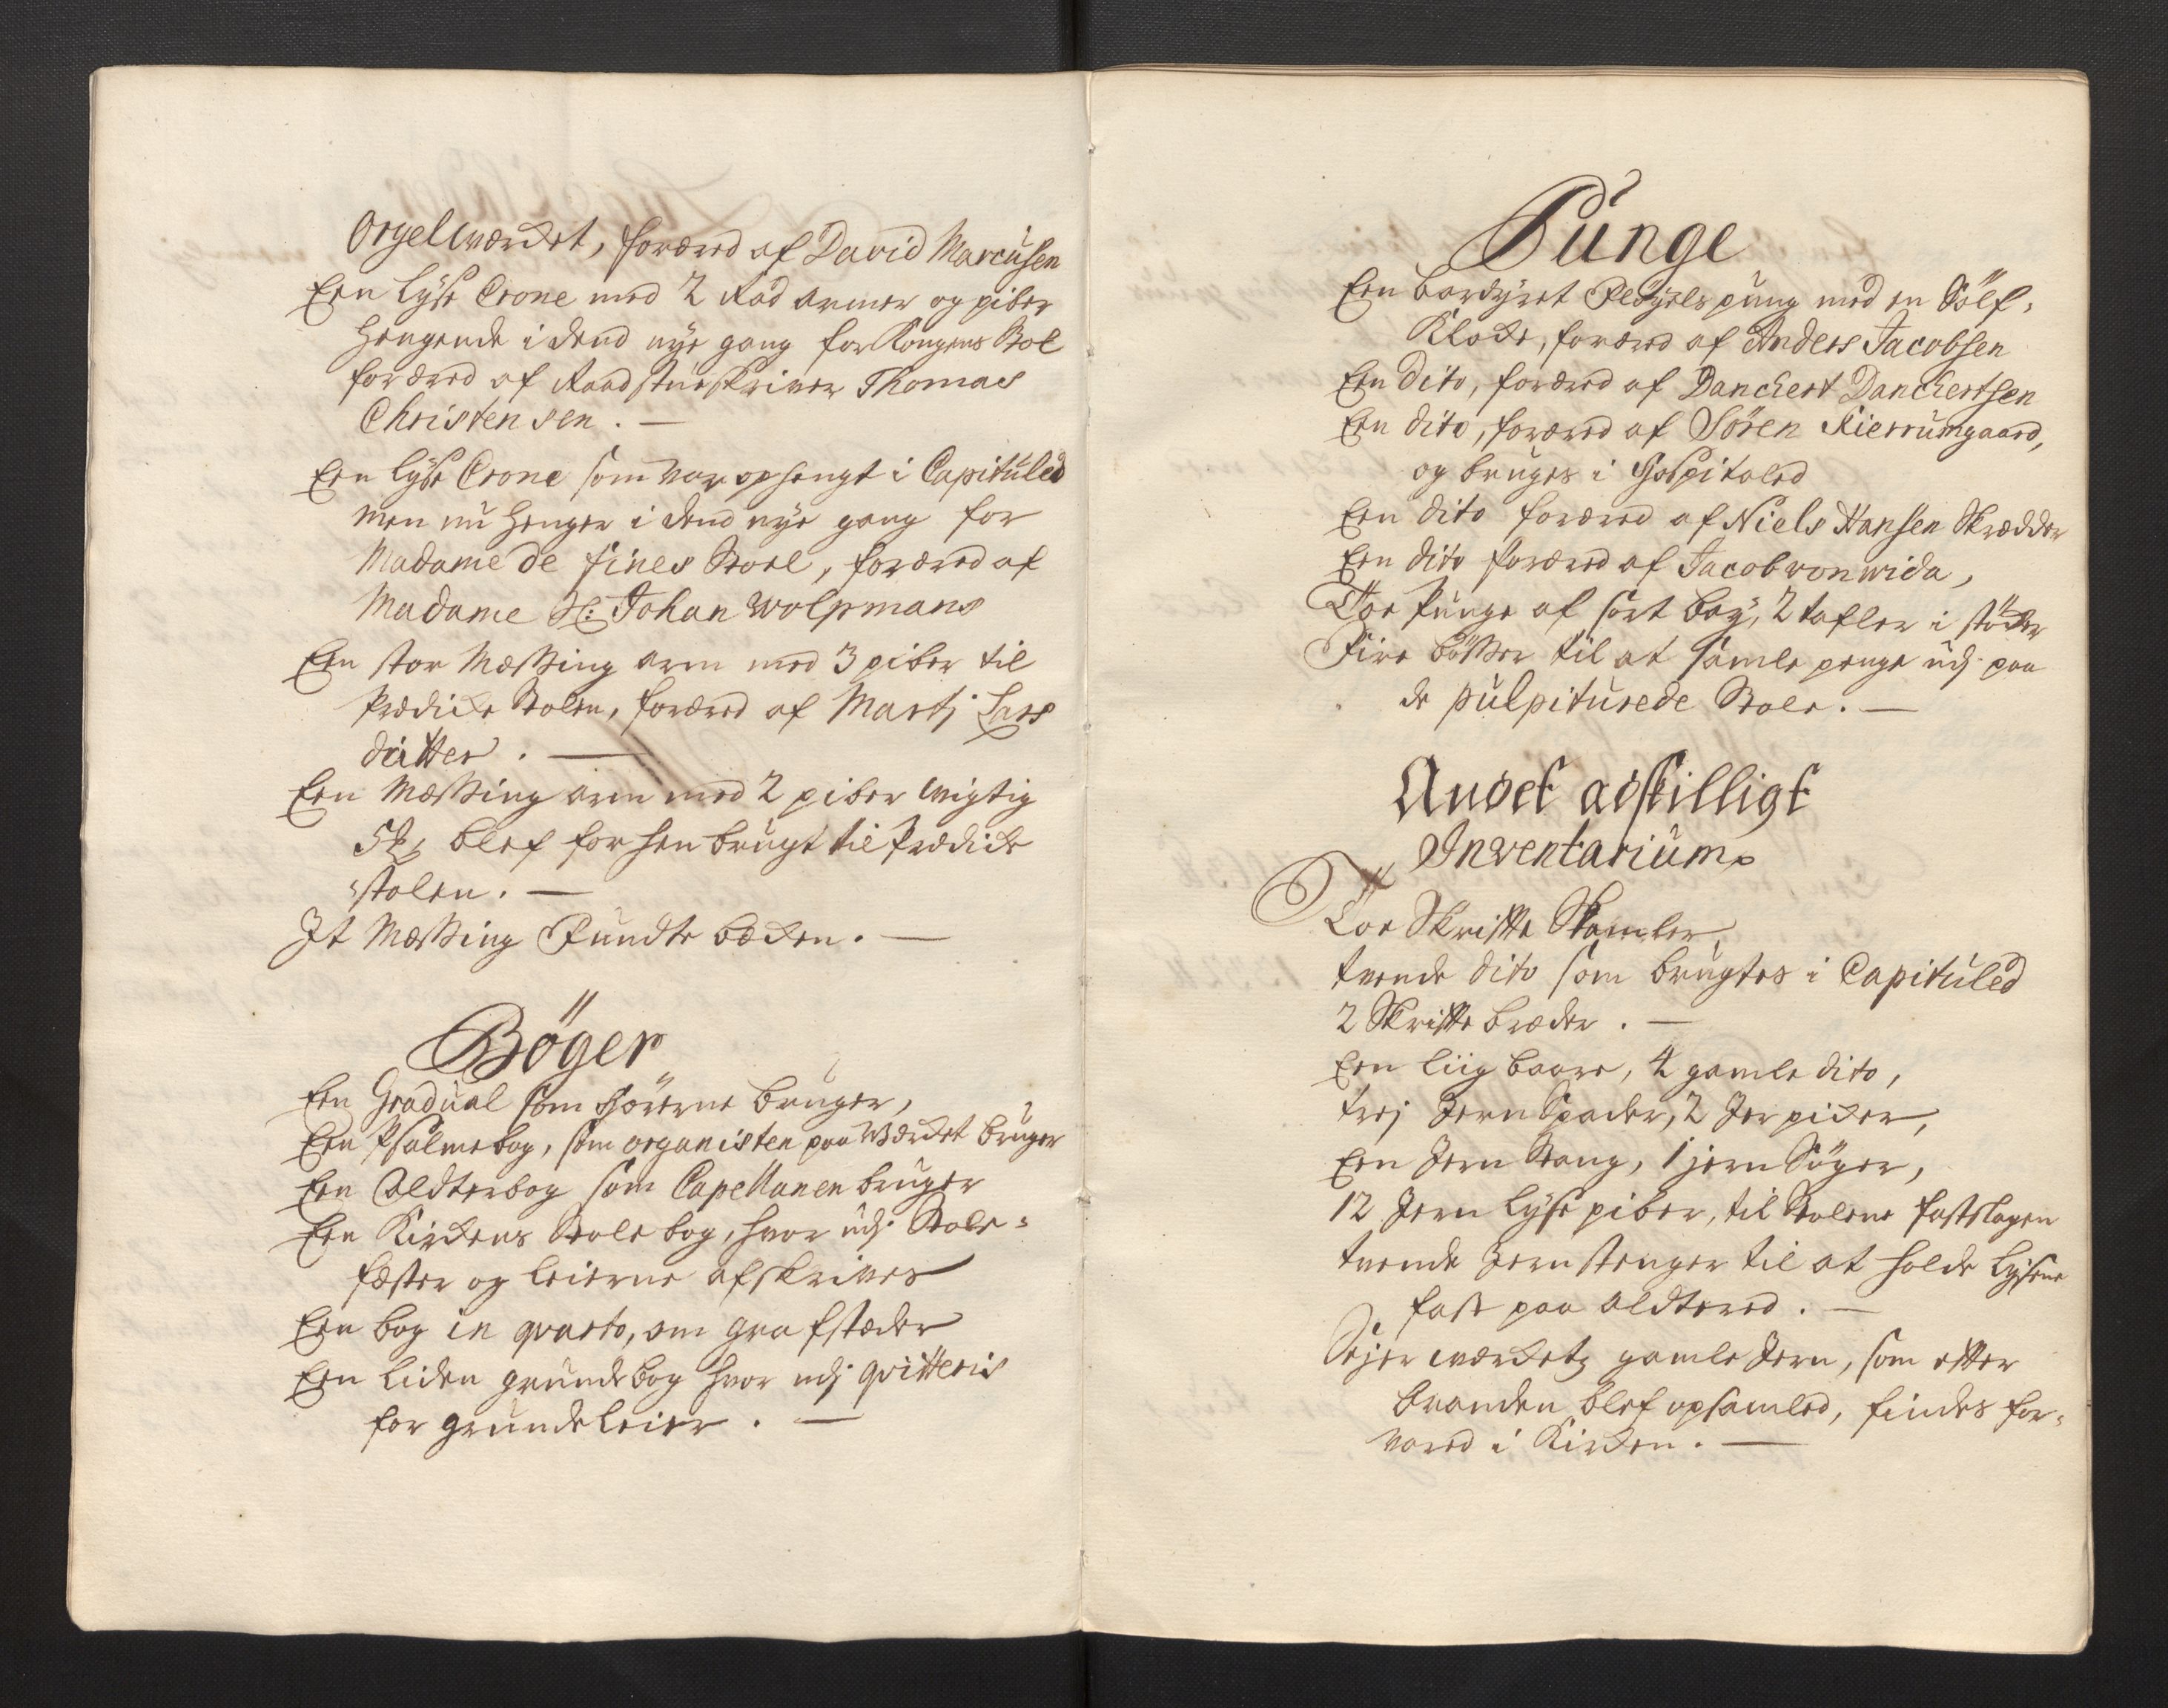 Orgelwærcket, foræred af David Marcusen
Een Lyse Crone med 2 Rad armer og piber
hengende i dend nye gang for Kongens Stol
foræred af Raadstueskriver Thomas
Christensen. —
Een Lyse Crone som var ophengt i Capituled
men nu henger i dend nye gang for
Madame de fines Stoel, foræred af
Madame Sl: Johan Wolpmans
Een stor Messing arm med 3 piber til
Prædicke Stolen, foræred af Martj Lars
datter. —
Een Messing arm med 2 piber wigtig
blef forhen brugt til Prædicke
stolen. —
Jt Messing Fundte becken. —
Böger
Een Gradual som Hörerne bruger,
Een Psalmebog, som organisten paa Wærcket bruger
Een Aldterbog som Capellanen bruger
Een Kirckens Stole bog, hvor udj Stole-
fæster og Leierne afskrives
Een bog in qvarto, om grafstæder
Een Liden grundebog hvor udj qvitteris
for grundeleier. —
Punge
Een bordyret Fløyels pung med en Sölf-
Klocke, foræred af Anders Jacobsen
Een Dito, foræred af Danckert Danckertsen
Een dito, foræred af Sören Kierrumgaard,
og bruges i Hospitaled
Een dito foræred af Niels Hansen Skrædder
Een dito foræred af Jacob von wida,
Toe Punge af sort bay, 2 tafler i stöcker
Fire bösser til at samle penge udj paa
de pulpiturede Stole. —
Andet adskilligt
Inventarium
Toe Skrifte Skamler,
tvende dito som brugtes i Capituled
2 Skrifte bræder. —
Een Liig baare, 4 gamle dito,
trej Jern Spader, 2 Jer picker,
Een Jern Stang, 1 jern Söger,
12 Jern Lyse piber, til Stolene fastslagen
tvende Jernstenger til at holde Lysene
fast paa Aldtered. —
Sejerwærcketz gamle Jern, som efter
branden blef opsamled, findes for-
vared i Kircken. —